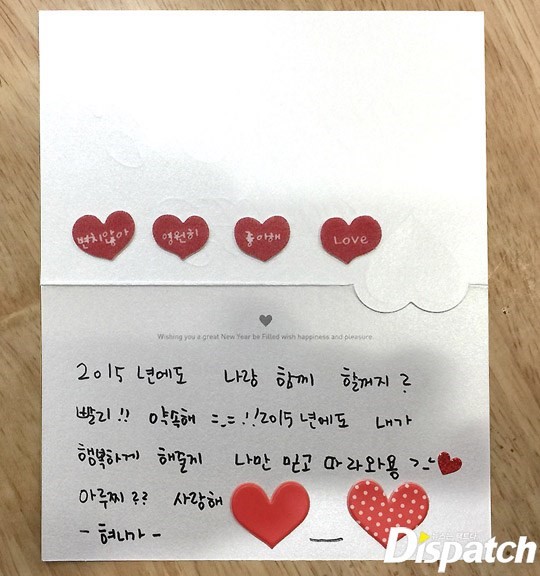 변치않아 영원히 좋아해 Love
Wishing you a great New Year be Filled wish happiness and pleasure.
2015 년에도 나랑 함께 할꺼지?
빨리!! 약속해 =_=!!2015년에도 내가
행복하게 해줄게 나만 믿고 따라와용 >_-
아루찌?? 사랑해
- 혀니가 -
Dispatch